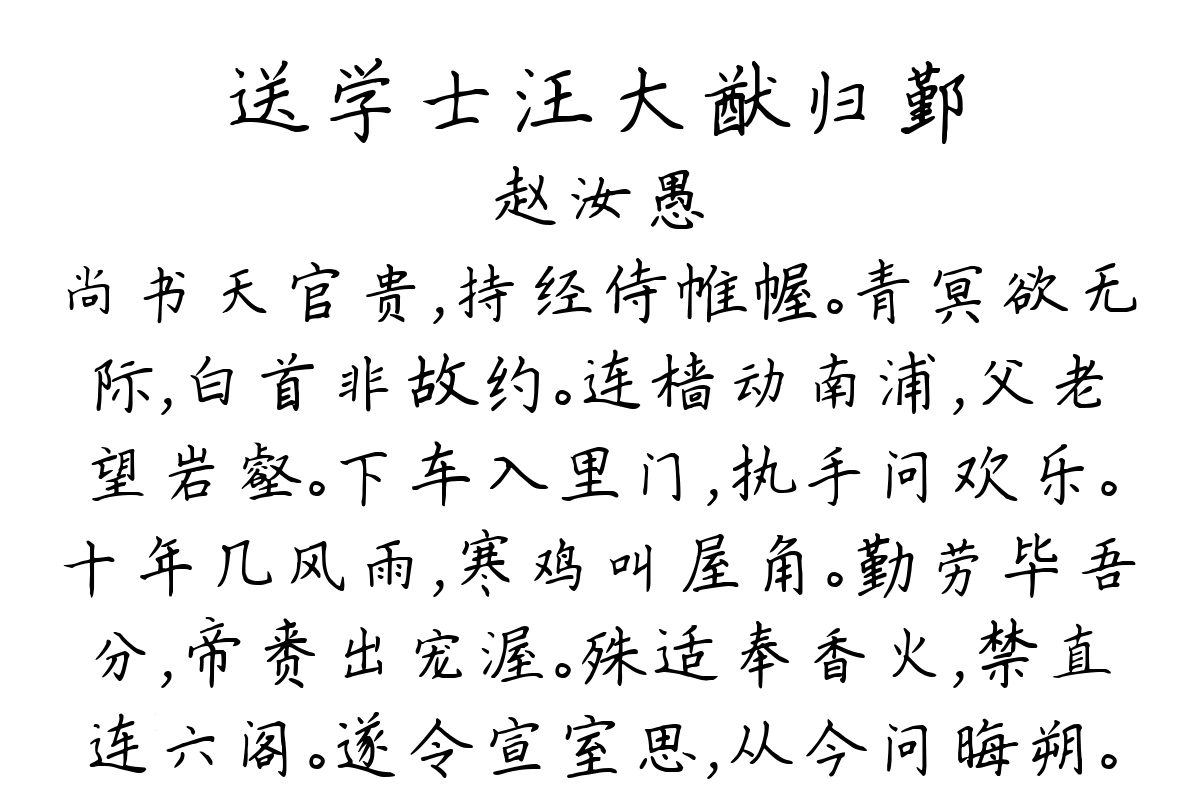 送学士汪大猷归鄞
赵汝愚
尚书天官贵,持经侍帷幄。青冥欲无
际,白首非故约。连樯动南浦,父老
望岩壑。下车入里门,执手问欢乐。
十年几风雨,寒鸡叫屋角。勤劳毕吾
分,帝赉出宠渥。殊适奉香火,禁直
连六阁。遂令宣室思,从今问晦朔。